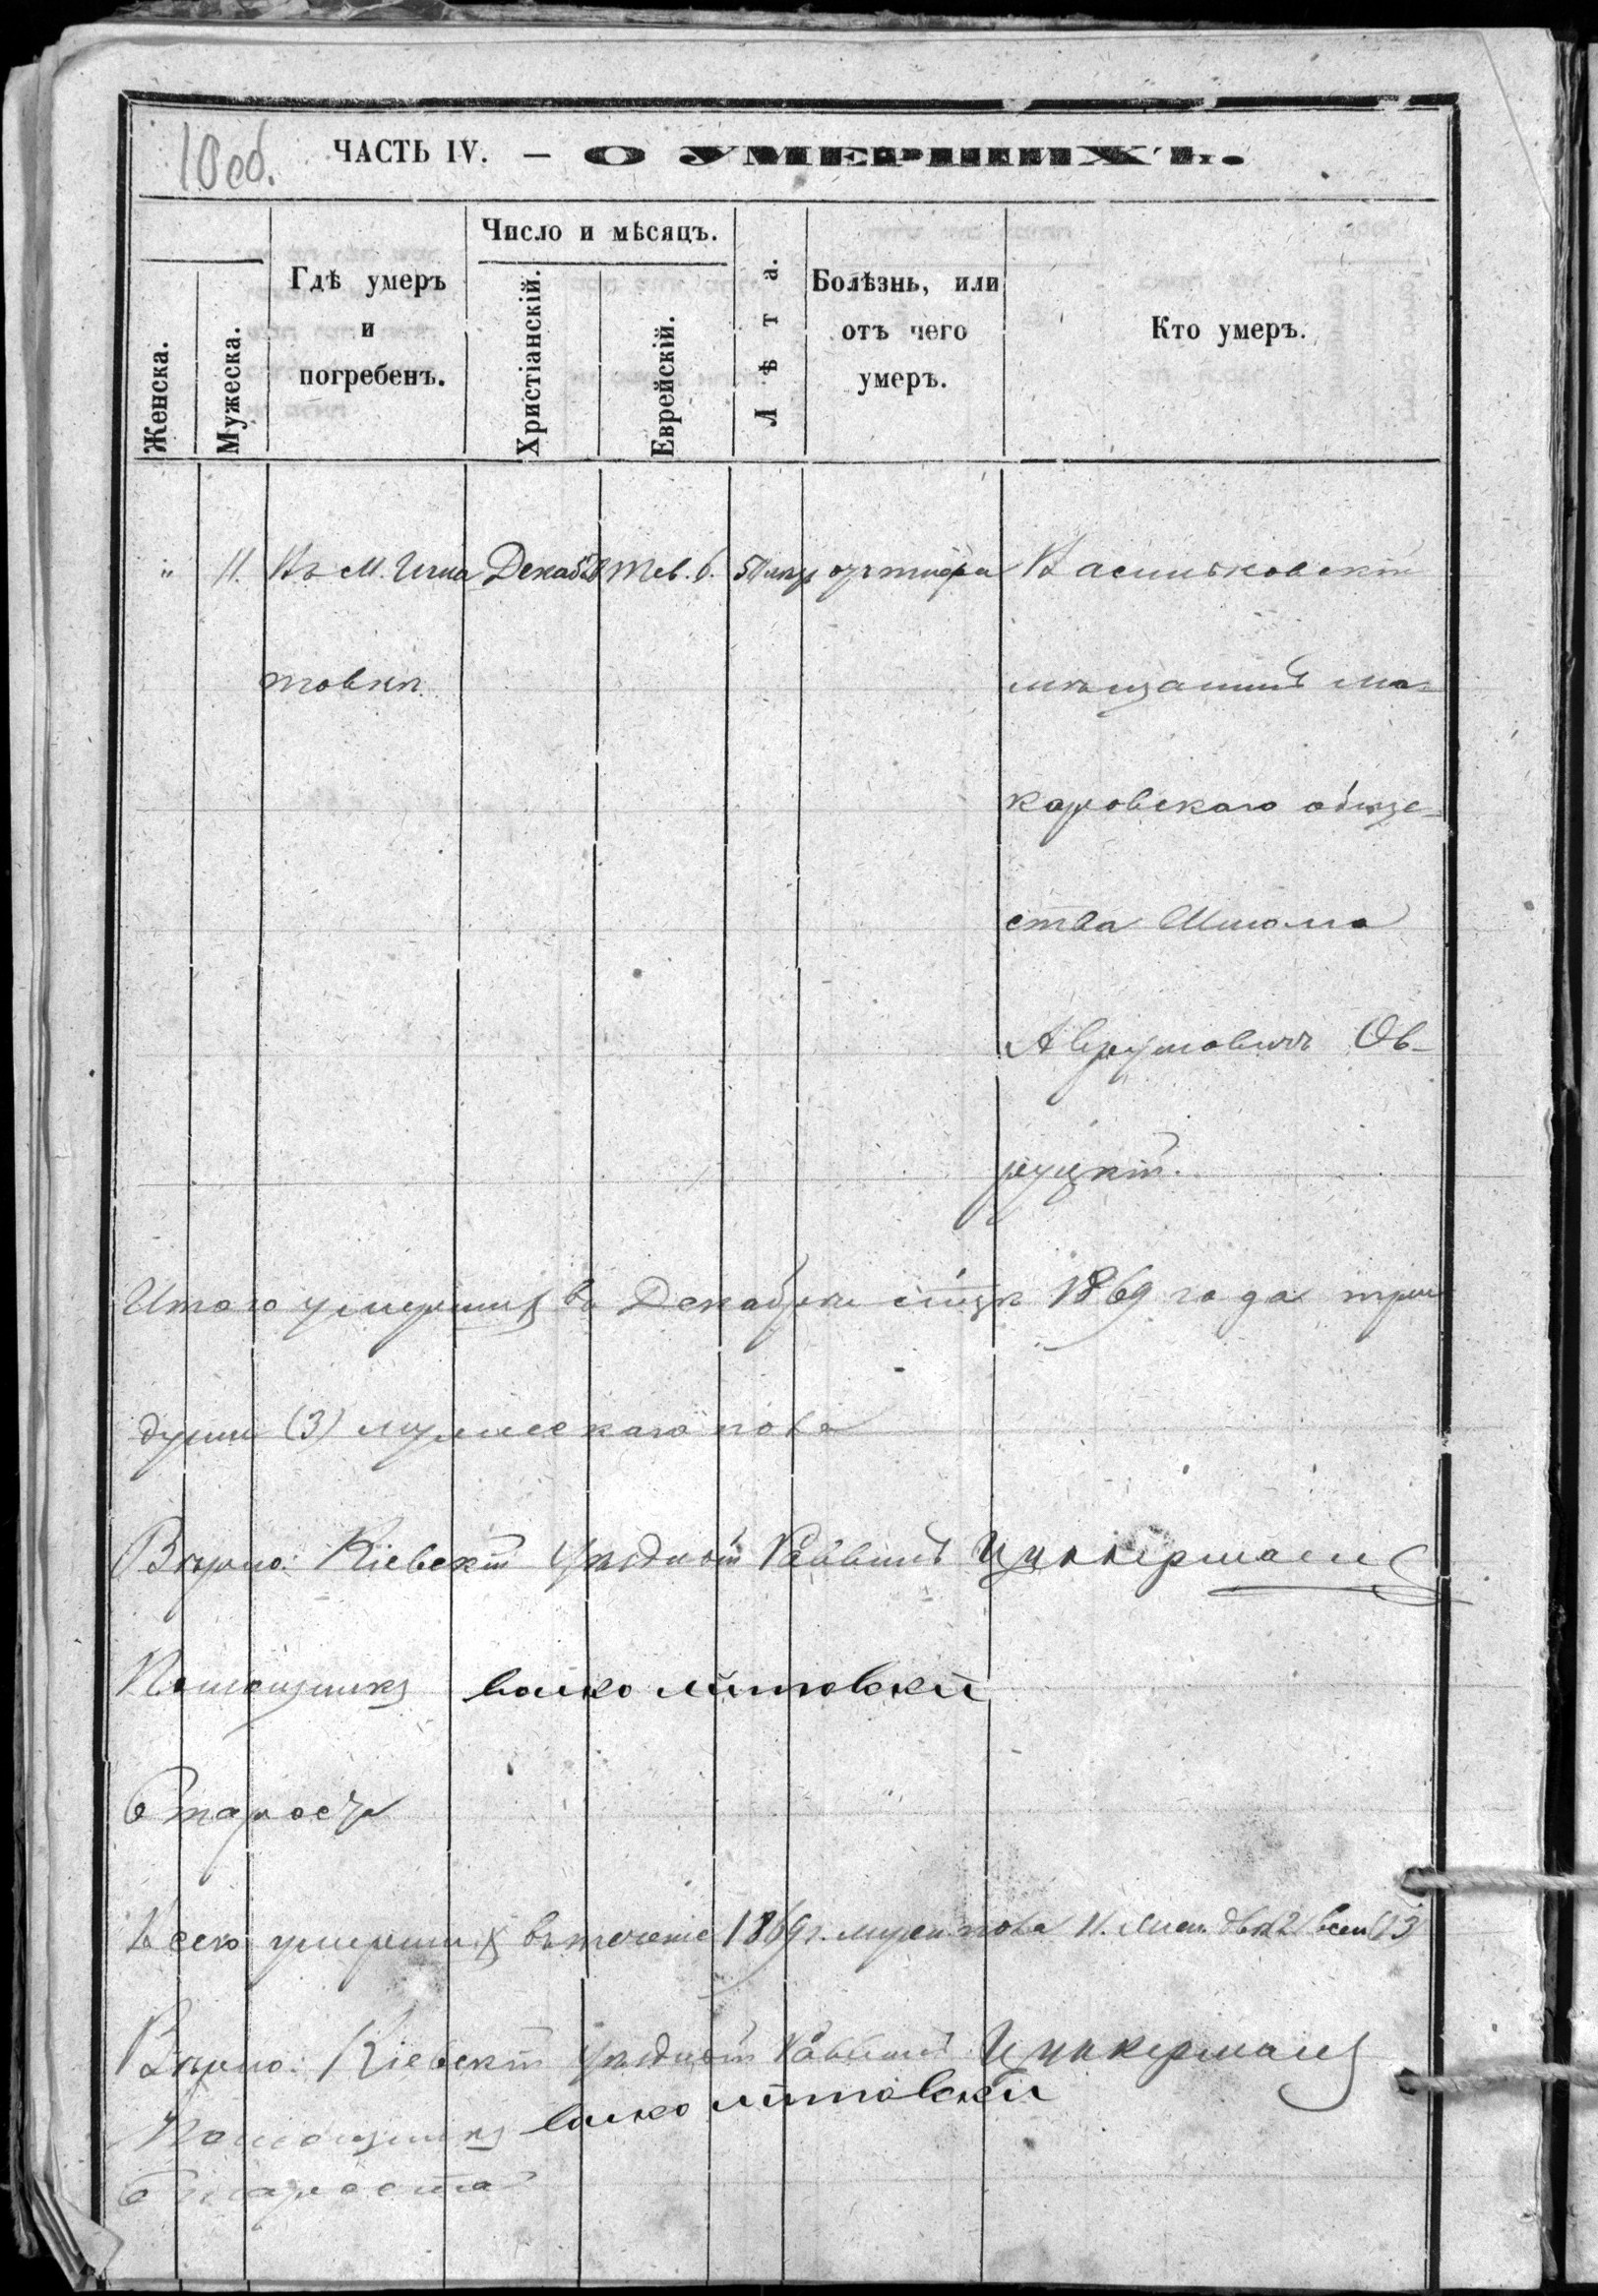 10 об.
ЧАСТЬ IV. — О УМЕРШИХЪ.
Женска.
Мужеска.
Гдѣ умеръ
и
погребенъ.
Число и мѣсяцъ.
Христіанскій.
Еврейскій.
Лѣта.
Болѣзнь, или
отъ чего
умеръ.
Кто умеръ.
" 11. Въ М. Игна Декаб. Тев. 6. отъ Васильковскій
товкѣ. мѣщанинъ Ма-
каровскаго обще-
ства Шлома
Аврумовичъ Ов-
руцкій.
Итого умершихъ въ Декабрѣ м-цѣ 1869 года три
души (3) мужескаго пола
Вѣрно: Кіевскій Уѣздный Раввинъ Цуккерманъ
Помощникъ Волко Литовскій
Староста
Всего умершихъ въ теченіе 1869 г. муж. пола 11. Жен. двѣ 2 всего 13
Вѣрно: Кіевскій Уѣздный Раввинъ Цуккерманъ
Помощникъ Волко Литовскій
Староста